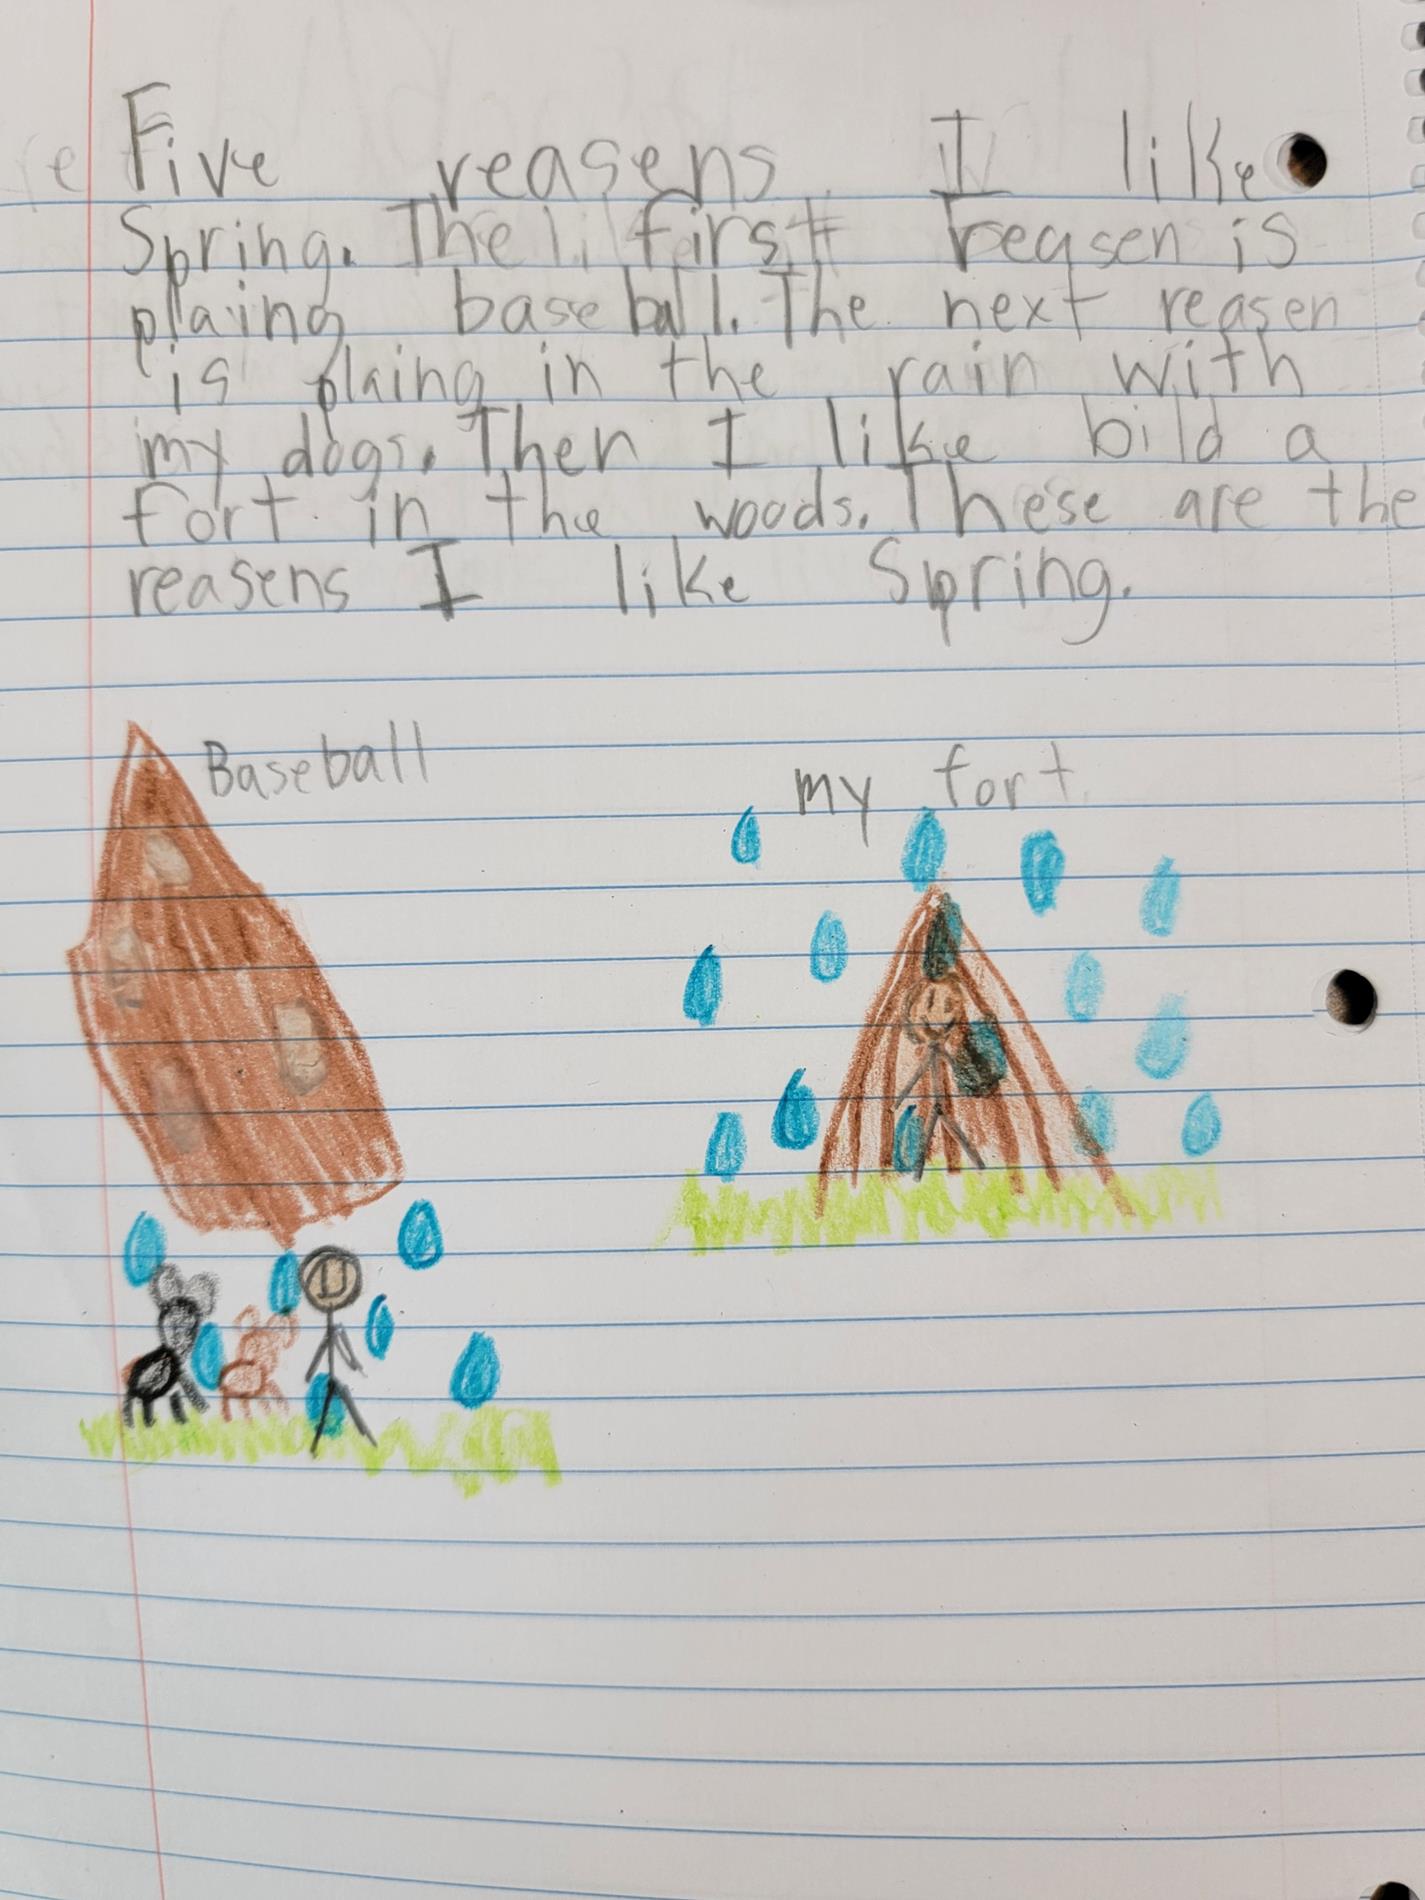 Five reasens I like
Spring. The first reasen is
plaing baseball. The next reasen
is plaing in the rain with
my dogs. Then I like bild a
fort in the woods. These are the
reasens I like Spring.
Baseball
my fort